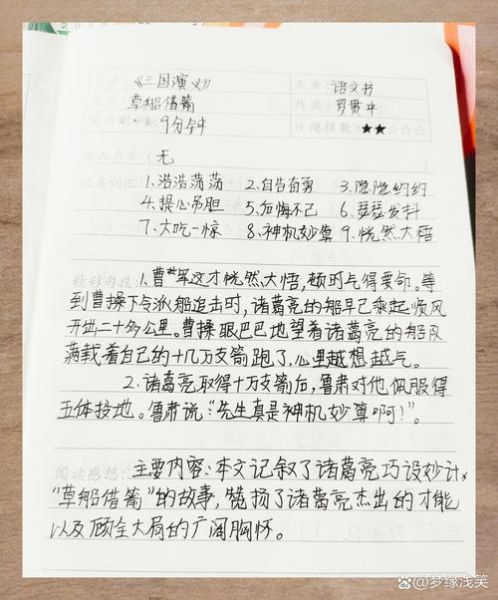 《三国演义》 来源 语文书
草船借箭 罗贯中
9分钟 兴趣指数 ★★☆☆☆
(无 )
1.浩浩荡荡 2.自告奋勇 3.隐隐约约
4.提心吊胆 5.后悔不已 6.瑟瑟发抖
7.大吃一惊 8.神机妙算 9.恍然大悟
精彩句段: 1.曹军这才恍然大悟,顿时气得要命。等
到曹操下令派船追击时,诸葛亮的船早已乘起顺风
开出二十多公里。曹操眼巴巴地望着诸葛亮的船只
满载着自己的十几万支箭跑了,心里越想越气。
2.诸葛亮取得十万支箭后,鲁肃对他佩服得
五体投地。鲁肃说:“先生真是神机妙算啊!”。
阅读感想: 主要内容:本文记叙了诸葛亮巧设妙计,
“草船借箭”的故事,赞扬了诸葛亮杰出的才能
以及顾全大局的广阔胸怀。
百家号@梦缘浅笑